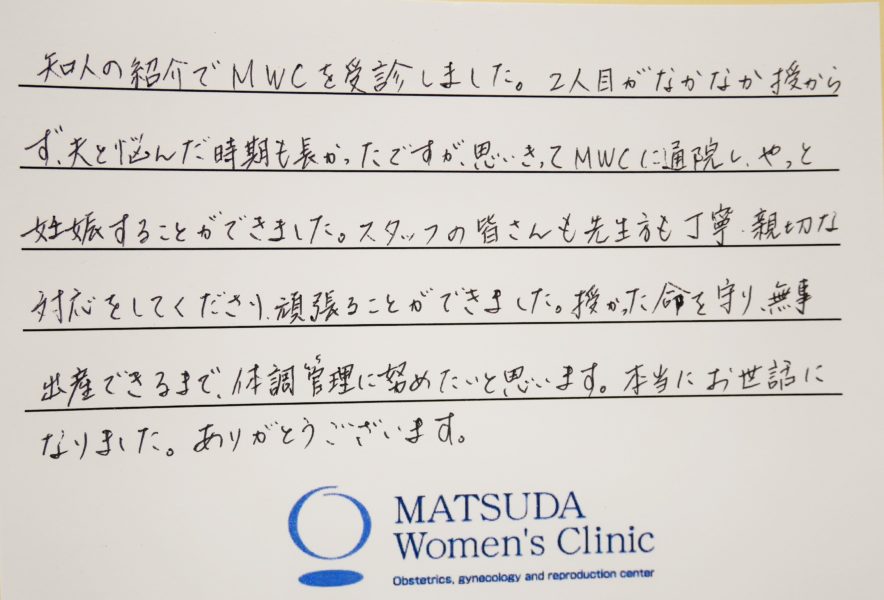 知人の紹介でMWCを受診しました。2人目がなかなか授から
ず、夫と悩んだ時期も長かったですが、思いきってMWCに通院し、やっと
妊娠することができました。スタッフの皆さんも先生方も丁寧、親切な
対応をしてくださり、頑張ることができました。授かった命を守り、無事
出産できるまで、体調管理に努めたいと思います。本当にお世話に
なりました。ありがとうございます。
MATSUDA
Women's Clinic
Obstetrics, gynecology and reproduction center